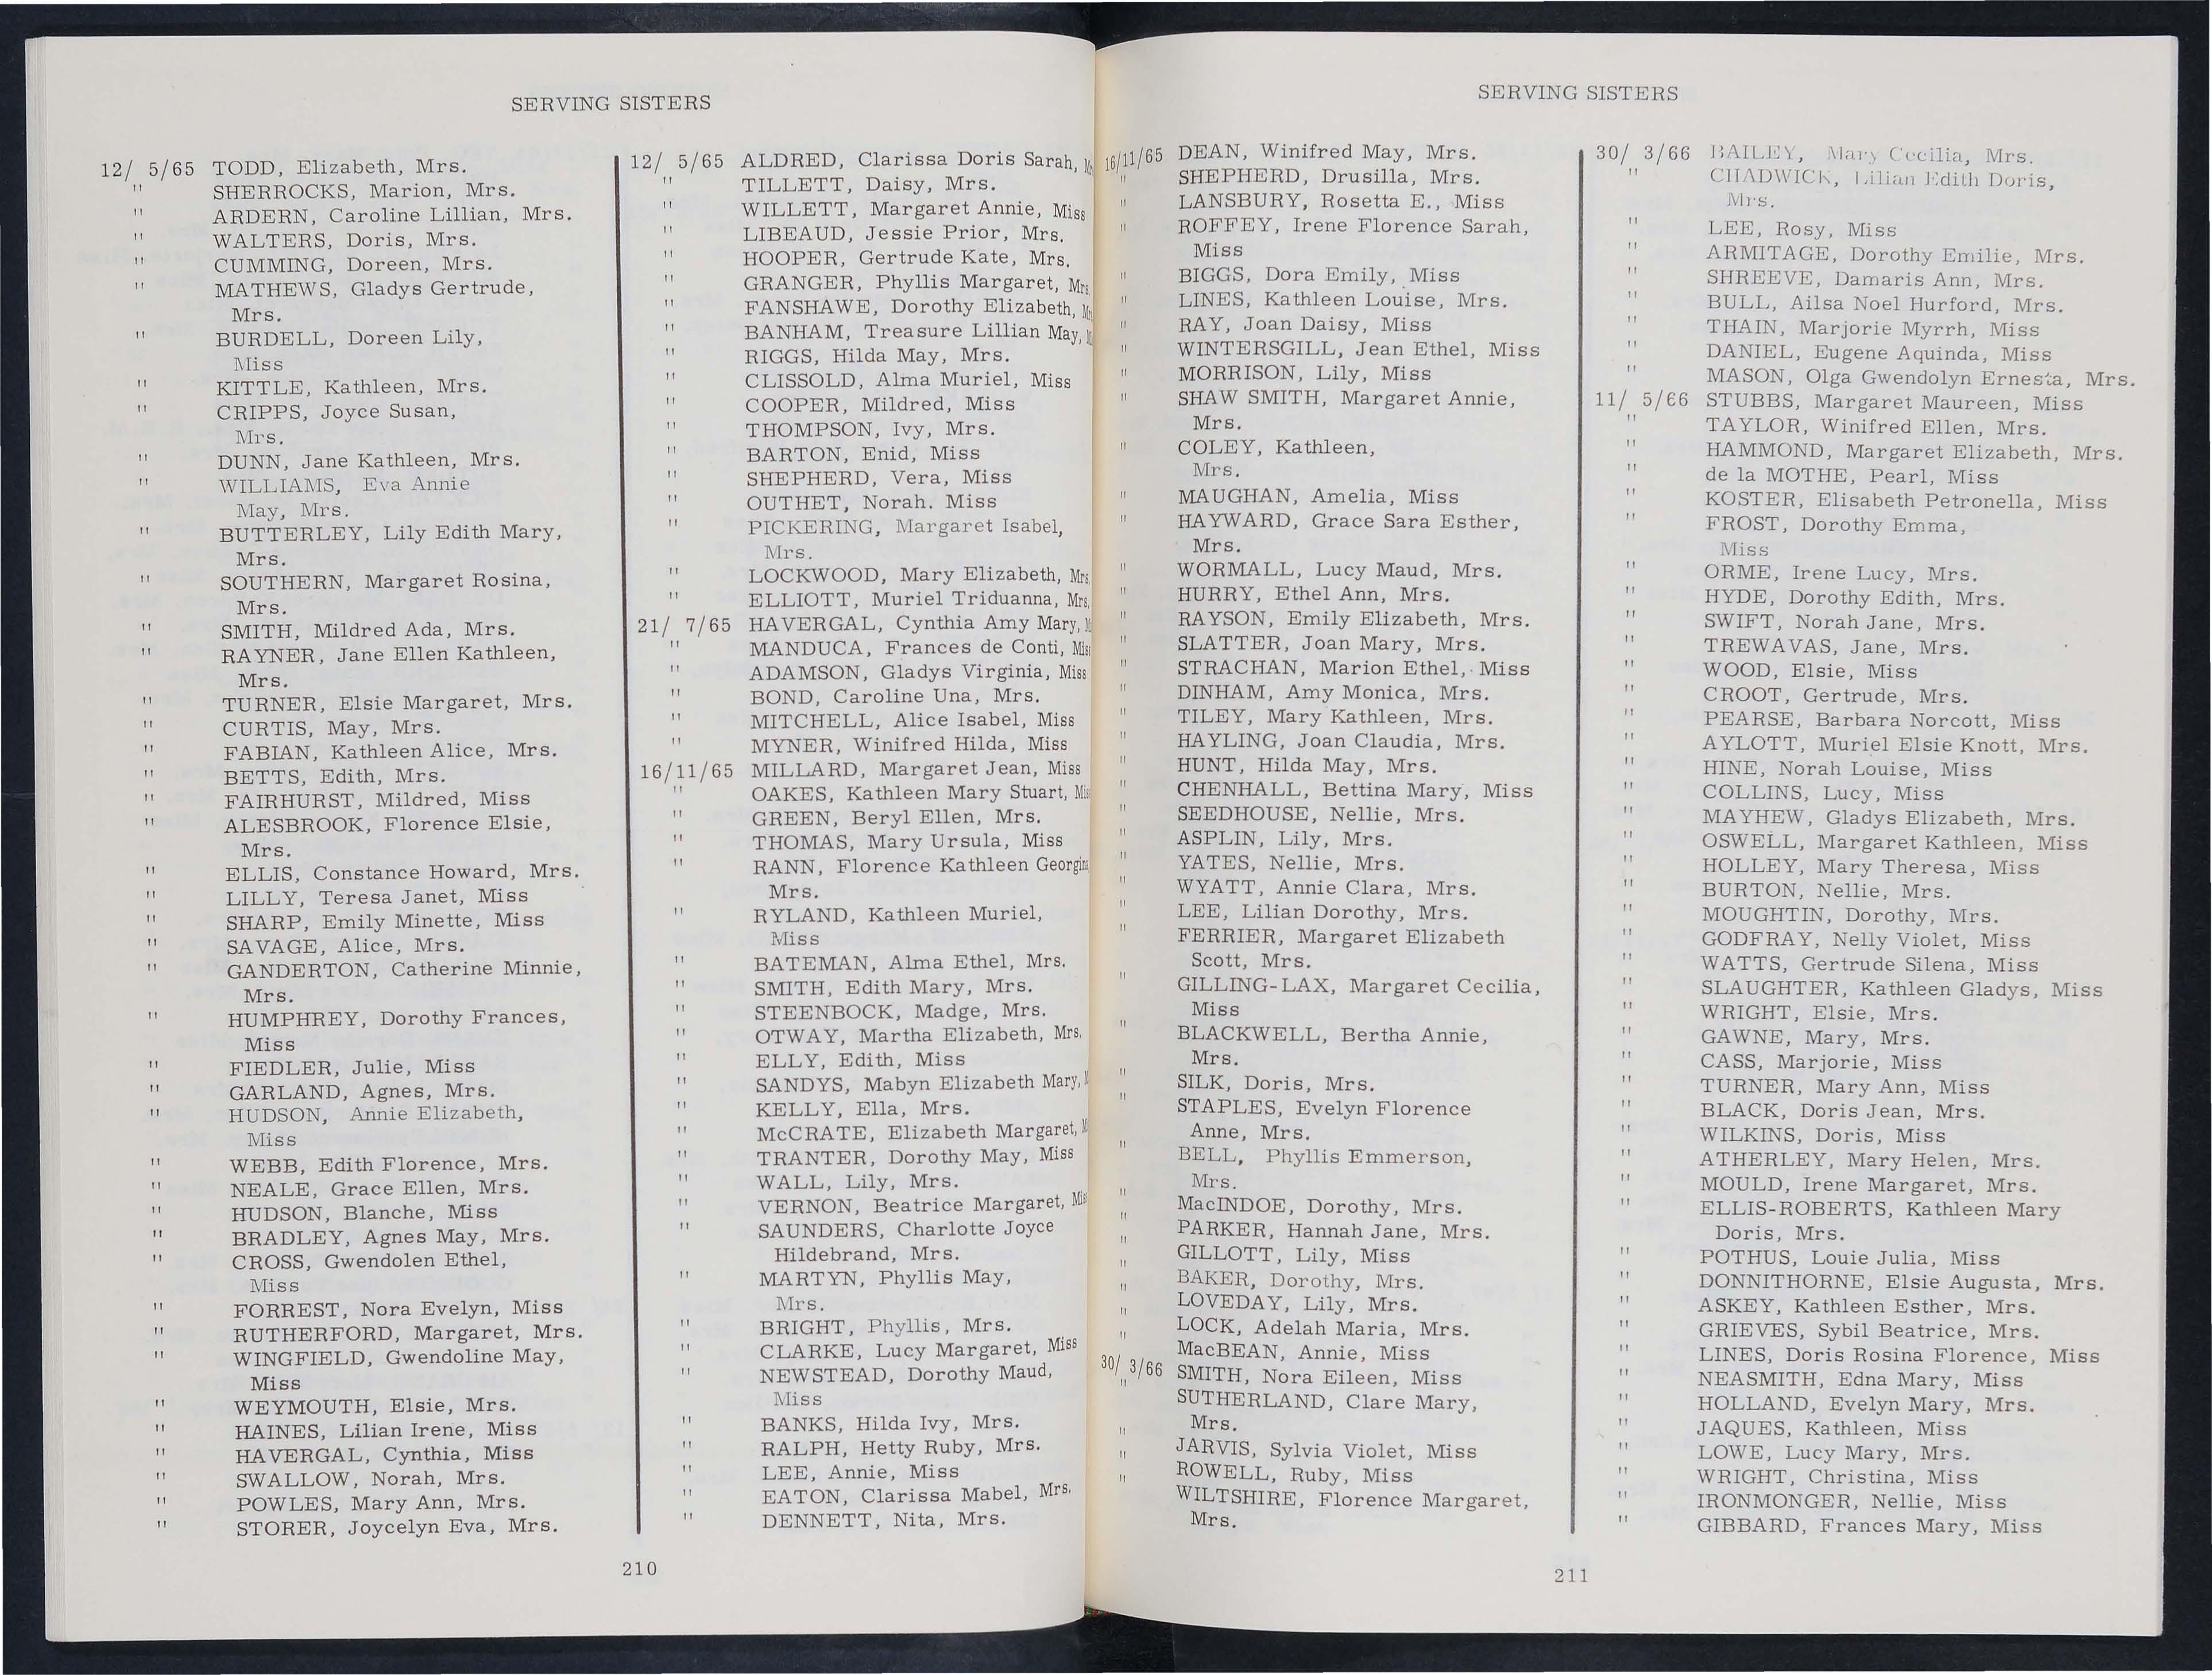 SERVING SISTERS
12/ 5/65 TODD, Elizabeth, Mrs.
" SHERROCKS, Marion, Mrs.
" ARDERN, Caroline Lillian, Mrs.
" WALTERS, Doris, Mrs.
" CUMMING, Doreen, Mrs.
" MATHEWS, Gladys Gertrude,
Mrs.
" BURDELL, Doreen Lily,
Miss
" KITTLE, Kathleen, Mrs.
" CRIPPS, Joyce Susan,
Mrs.
" DUNN, Jane Kathleen, Mrs.
" WILLIAMS, Eva Annie
May, Mrs.
" BUTTERLEY, Lily Edith Mary,
Mrs.
" SOUTHERN, Margaret Rosina,
Mrs.
" SMITH, Mildred Ada, Mrs.
" RAYNER, Jane Ellen Kathleen,
Mrs.
" TURNER, Elsie Margaret, Mrs.
" CURTIS, May, Mrs.
" FABIAN, Kathleen Alice, Mrs.
" BETTS, Edith, Mrs.
" FAIRHURST, Mildred, Miss
" ALESBROOK, Florence Elsie,
Mrs.
" ELLIS, Constance Howard, Mrs.
" LILLY, Teresa Janet, Miss
" SHARP, Emily Minette, Miss
" SAVAGE, Alice, Mrs.
" GANDERTON, Catherine Minnie,
Mrs.
" HUMPHREY, Dorothy Frances,
Miss
" FIEDLER, Julie, Miss
" GARLAND, Agnes, Mrs.
" HUDSON, Annie Elizabeth,
Miss
" WEBB, Edith Florence, Mrs.
" NEALE, Grace Ellen, Mrs.
" HUDSON, Blanche, Miss
" BRADLEY, Agnes May, Mrs.
" CROSS, Gwendolen Ethel,
Miss
" FORREST, Nora Evelyn, Miss
" RUTHERFORD, Margaret, Mrs.
" WINGFIELD, Gwendoline May,
Miss
" WEYMOUTH, Elsie, Mrs.
" HAINES, Lilian Irene, Miss
" HAVERGAL, Cynthia, Miss
" SWALLOW, Norah, Mrs.
" POWLES, Mary Ann, Mrs.
" STORER, Joycelyn Eva, Mrs.
12/ 5/65 ALDRED, Clarissa Doris Sarah,
" TILLETT, Daisy, Mrs.
" WILLETT, Margaret Annie, Miss
" LIBEAUD, Jessie Prior, Mrs.
" HOOPER, Gertrude Kate, Mrs.
" GRANGER, Phyllis Margaret, Mrs.
" FANSHAWE, Dorothy Elizabeth,
" BANHAM, Treasure Lillian May,
" RIGGS, Hilda May, Mrs.
" CLISSOLD, Alma Muriel, Miss
" COOPER, Mildred, Miss
" THOMPSON, Ivy, Mrs.
" BARTON, Enid, Miss
" SHEPHERD, Vera, Miss
" OUTHET, Norah. Miss
" PICKERING, Margaret Isabel,
Mrs.
" LOCKWOOD, Mary Elizabeth, Mrs.
" ELLIOTT, Muriel Triduanna, Mrs.
21/ 7/65 HAVERGAL, Cynthia Amy Mary,
" MANDUCA, Frances de Conti, Miss
" ADAMSON, Gladys Virginia, Miss
" BOND, Caroline Una, Mrs.
" MITCHELL, Alice Isabel, Miss
" MYNER, Winifred Hilda, Miss
16/11/65 MILLARD, Margaret Jean, Miss
" OAKES, Kathleen Mary Stuart, Mis
" GREEN, Beryl Ellen, Mrs.
" THOMAS, Mary Ursula, Miss
" RANN, Florence Kathleen Georgina
Mrs.
" RYLAND, Kathleen Muriel,
Miss
" BATEMAN, Alma Ethel, Mrs.
" SMITH, Edith Mary, Mrs.
" STEENBOCK, Madge, Mrs.
" OTWAY, Martha Elizabeth, Mrs.
" ELLY, Edith, Miss
" SANDYS, Mabyn Elizabeth Mary,
" KELLY, Ella, Mrs.
" McCRATE, Elizabeth Margaret,
" TRANTER, Dorothy May, Miss
" WALL, Lily, Mrs.
" VERNON, Beatrice Margaret, Mis
" SAUNDERS, Charlotte Joyce
Hildebrand, Mrs.
" MARTYN, Phyllis May,
Mrs.
" BRIGHT, Phyllis, Mrs.
" CLARKE, Lucy Margaret, Miss
" NEWSTEAD, Dorothy Maud,
Miss
" BANKS, Hilda Ivy, Mrs.
" RALPH, Hetty Ruby, Mrs.
" LEE, Annie, Miss
" EATON, Clarissa Mabel, Mrs.
" DENNETT, Nita, Mrs.
210
SERVING SISTERS
16/11/65 DEAN, Winifred May, Mrs.
" SHEPHERD, Drusilla, Mrs.
" LANSBURY, Rosetta E., Miss
" ROFFEY, Irene Florence Sarah,
Miss
" BIGGS, Dora Emily, Miss
" LINES, Kathleen Louise, Mrs.
" RAY, Joan Daisy, Miss
" WINTERSGILL, Jean Ethel, Miss
" MORRISON, Lily, Miss
" SHAW SMITH, Margaret Annie,
Mrs.
" COLEY, Kathleen,
Mrs.
" MAUGHAN, Amelia, Miss
" HAYWARD, Grace Sara Esther,
Mrs.
" WORMALL, Lucy Maud, Mrs.
" HURRY, Ethel Ann, Mrs.
" RAYSON, Emily Elizabeth, Mrs.
" SLATTER, Joan Mary, Mrs.
" STRACHAN, Marion Ethel, Miss
" DINHAM, Amy Monica, Mrs.
" TILEY, Mary Kathleen, Mrs.
" HAYLING, Joan Claudia, Mrs.
" HUNT, Hilda May, Mrs.
" CHENHALL, Bettina Mary, Miss
" SEEDHOUSE, Nellie, Mrs.
" ASPLIN, Lily, Mrs.
" YATES, Nellie, Mrs.
" WYATT, Annie Clara, Mrs.
" LEE, Lilian Dorothy, Mrs.
" FERRIER, Margaret Elizabeth
Scott, Mrs.
" GILLING-LAX, Margaret Cecilia,
Miss
" BLACKWELL, Bertha Annie,
Mrs.
" SILK, Doris, Mrs.
" STAPLES, Evelyn Florence
Anne, Mrs.
" BELL, Phyllis Emmerson,
Mrs.
" MacINDOE, Dorothy, Mrs.
" PARKER, Hannah Jane, Mrs.
" GILLOTT, Lily, Miss
" BAKER, Dorothy, Mrs.
" LOVEDAY, Lily, Mrs.
" LOCK, Adelah Maria, Mrs.
" MacBEAN, Annie, Miss
30/ 3/66 SMITH, Nora Eileen, Miss
" SUTHERLAND, Clare Mary,
Mrs.
" JARVIS, Sylvia Violet, Miss
" ROWELL, Ruby, Miss
" WILTSHIRE, Florence Margaret,
Mrs.
30/ 3/66 BAILEY, Mary Cecilia, Mrs.
" CHADWICK, Lilian Edith Doris,
Mrs.
" LEE, Rosy, Miss
" ARMITAGE, Dorothy Emilie, Mrs.
" SHREEVE, Damaris Ann, Mrs.
" BULL, Ailsa Noel Hurford, Mrs.
" THAIN, Marjorie Myrrh, Miss
" DANIEL, Eugene Aquinda, Miss
" MASON, Olga Gwendolyn Ernesta, Mrs.
11/ 5/66 STUBBS, Margaret Maureen, Miss
" TAYLOR, Winifred Ellen, Mrs.
" HAMMOND, Margaret Elizabeth, Mrs.
" de la MOTHE, Pearl, Miss
" KOSTER, Elisabeth Petronella, Miss
" FROST, Dorothy Emma,
Miss
" ORME, Irene Lucy, Mrs.
" HYDE, Dorothy Edith, Mrs.
" SWIFT, Norah Jane, Mrs.
" TREWAVAS, Jane, Mrs.
" WOOD, Elsie, Miss
" CROOT, Gertrude, Mrs.
" PEARSE, Barbara Norcott, Miss
" AYLOTT, Muriel Elsie Knott, Mrs.
" HINE, Norah Louise, Miss
" COLLINS, Lucy, Miss
" MAYHEW, Gladys Elizabeth, Mrs.
" OSWELL, Margaret Kathleen, Miss
" HOLLEY, Mary Theresa, Miss
" BURTON, Nellie, Mrs.
" MOUGHTIN, Dorothy, Mrs.
" GODFRAY, Nelly Violet, Miss
" WATTS, Gertrude Silena, Miss
" SLAUGHTER, Kathleen Gladys, Miss
" WRIGHT, Elsie, Mrs.
" GAWNE, Mary, Mrs.
" CASS, Marjorie, Miss
" TURNER, Mary Ann, Miss
" BLACK, Doris Jean, Mrs.
" WILKINS, Doris, Miss
" ATHERLEY, Mary Helen, Mrs.
" MOULD, Irene Margaret, Mrs.
" ELLIS-ROBERTS, Kathleen Mary
Doris, Mrs.
" POTHUS, Louie Julia, Miss
" DONNITHORNE, Elsie Augusta, Mrs.
" ASKEY, Kathleen Esther, Mrs.
" GRIEVES, Sybil Beatrice, Mrs.
" LINES, Doris Rosina Florence, Miss
" NEASMITH, Edna Mary, Miss
" HOLLAND, Evelyn Mary, Mrs.
" JAQUES, Kathleen, Miss
" LOWE, Lucy Mary, Mrs.
" WRIGHT, Christina, Miss
" IRONMONGER, Nellie, Miss
" GIBBARD, Frances Mary, Miss
211